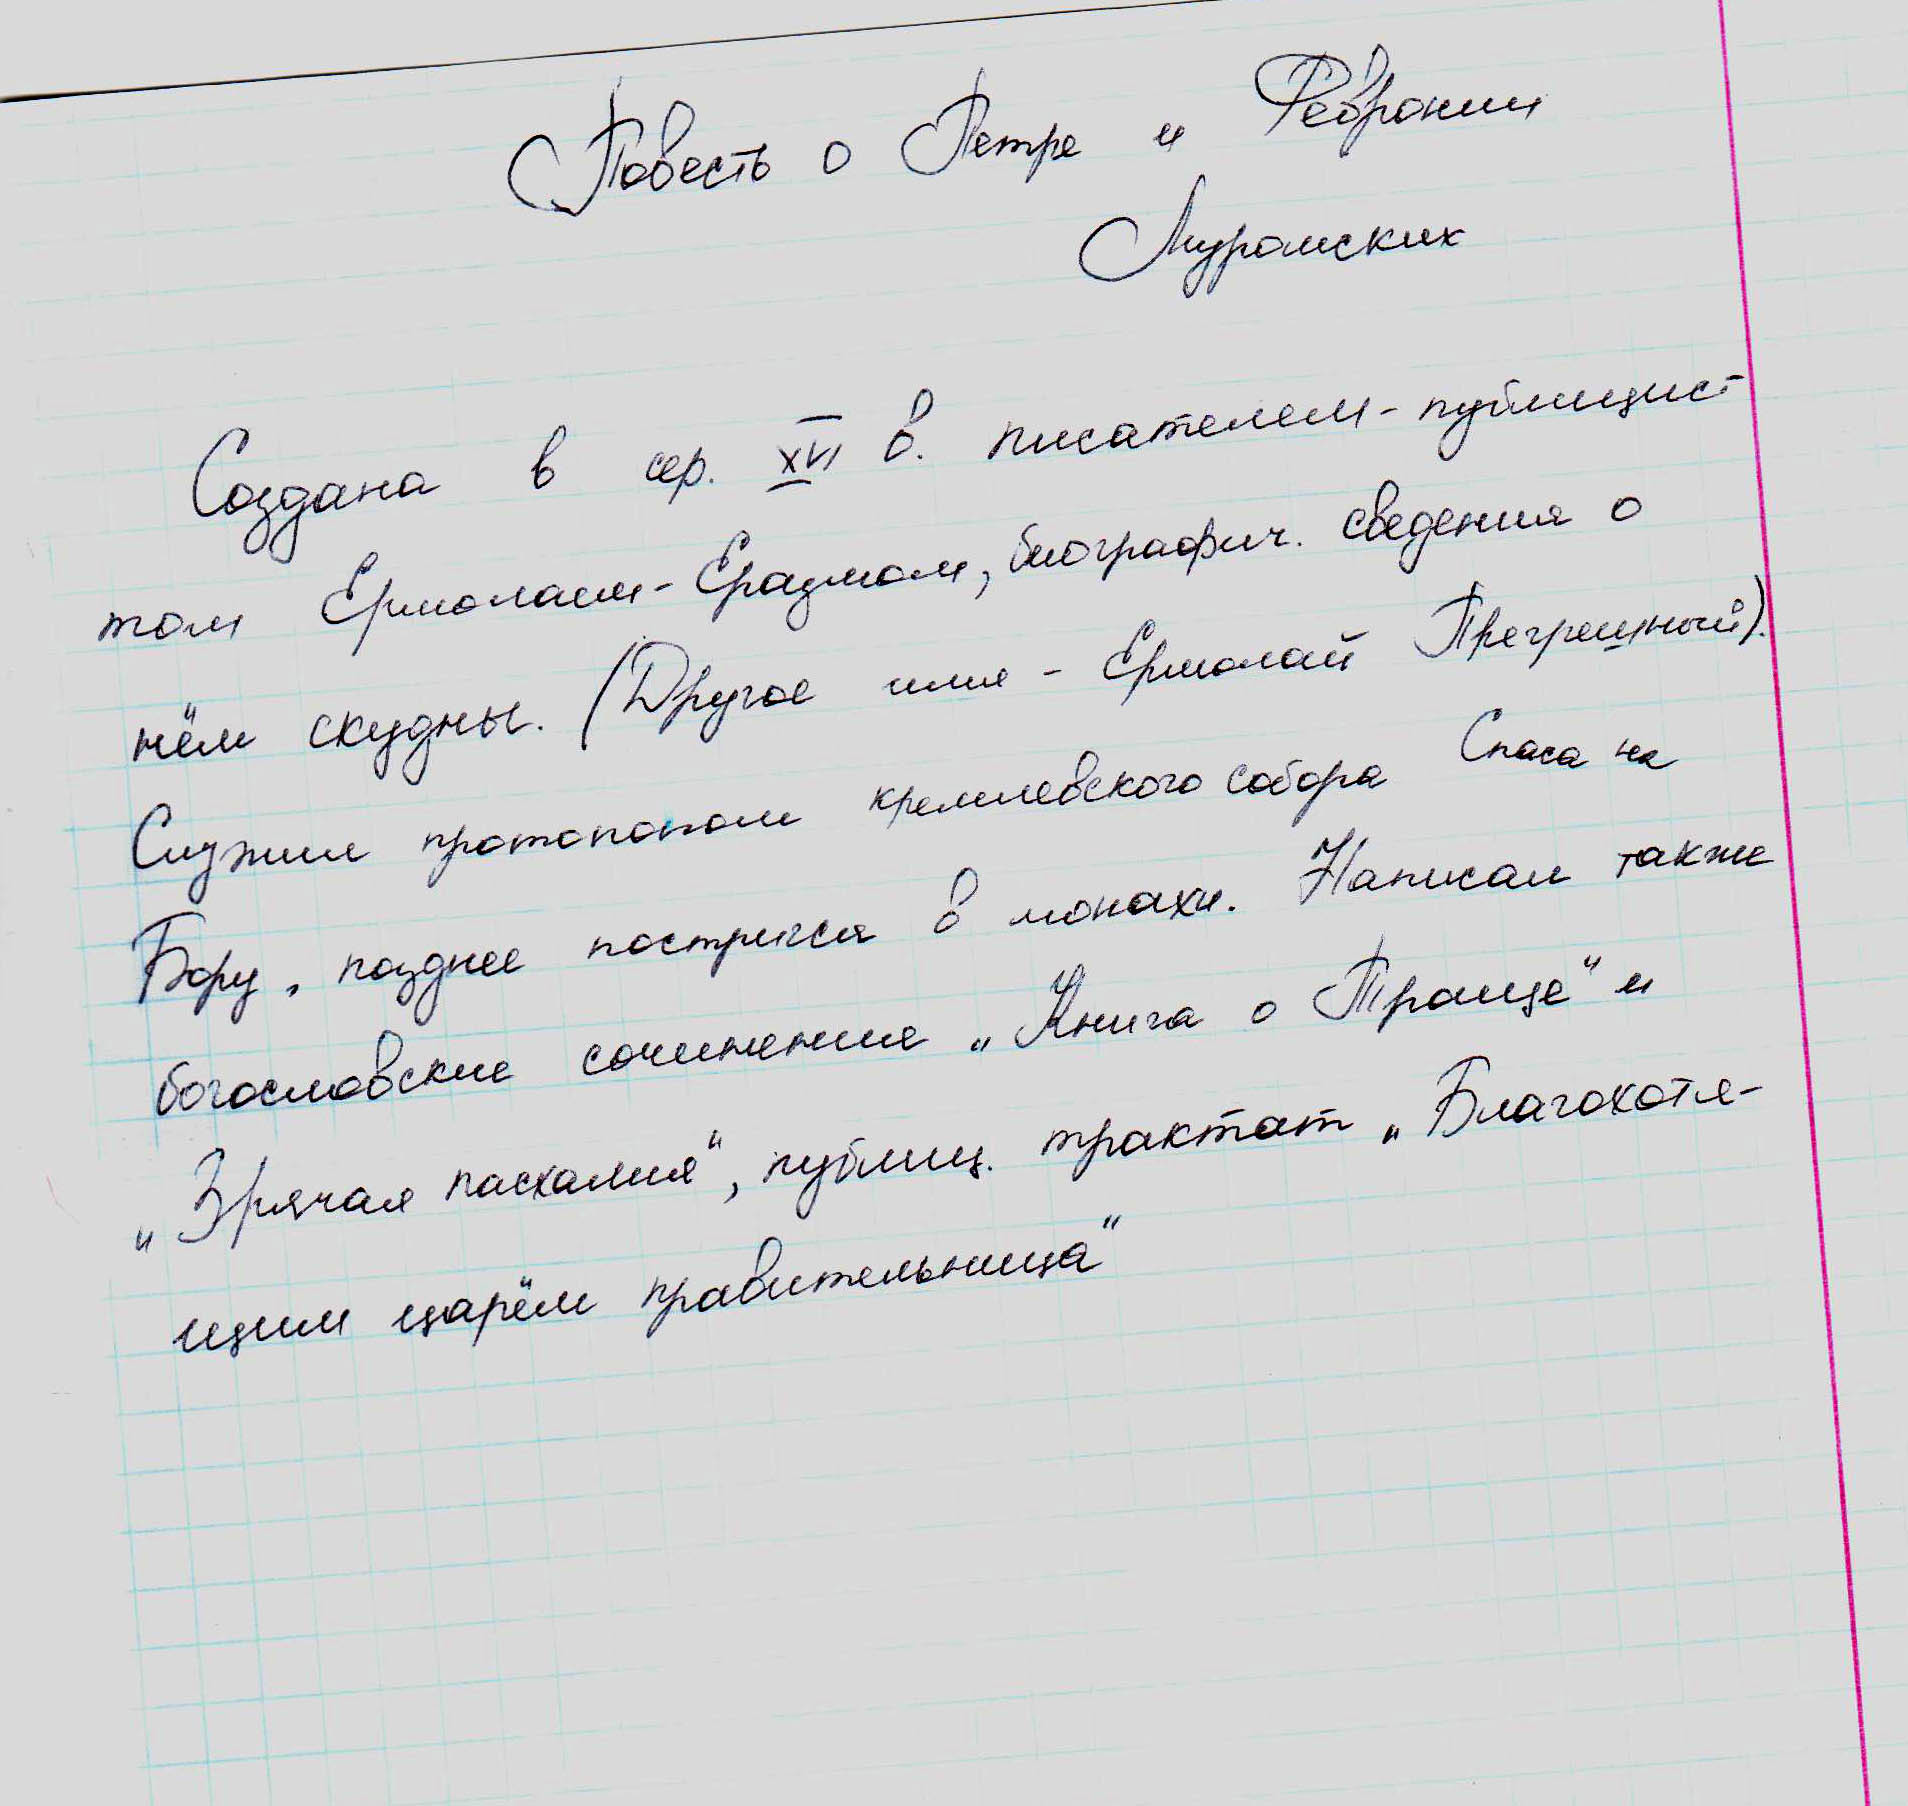 Повесть о Петре и Февронии
Муромских
Создана в сер. XVI в. писателем-публицис-
том Ермолаем-Еразмом, биографич. сведения о
нём скудны. (Другое имя - Ермолай Прегрешный).
Служил протопопом кремлевского собора Спаса на
Бору, позднее постригся в монахи. Написал также
богословские сочинения „Книга о Троице“ и
„Зрячая пасхалия“, публиц. трактат „Благохотя-
щим царём правительница“